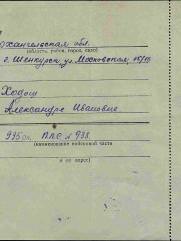 Архангельская обл.
(область, район, город, село)
г. Шенкурск ул. Московская
Ходош
Александре Ивановне
ППС № 938
(наименование войсковой части
и ее адрес)